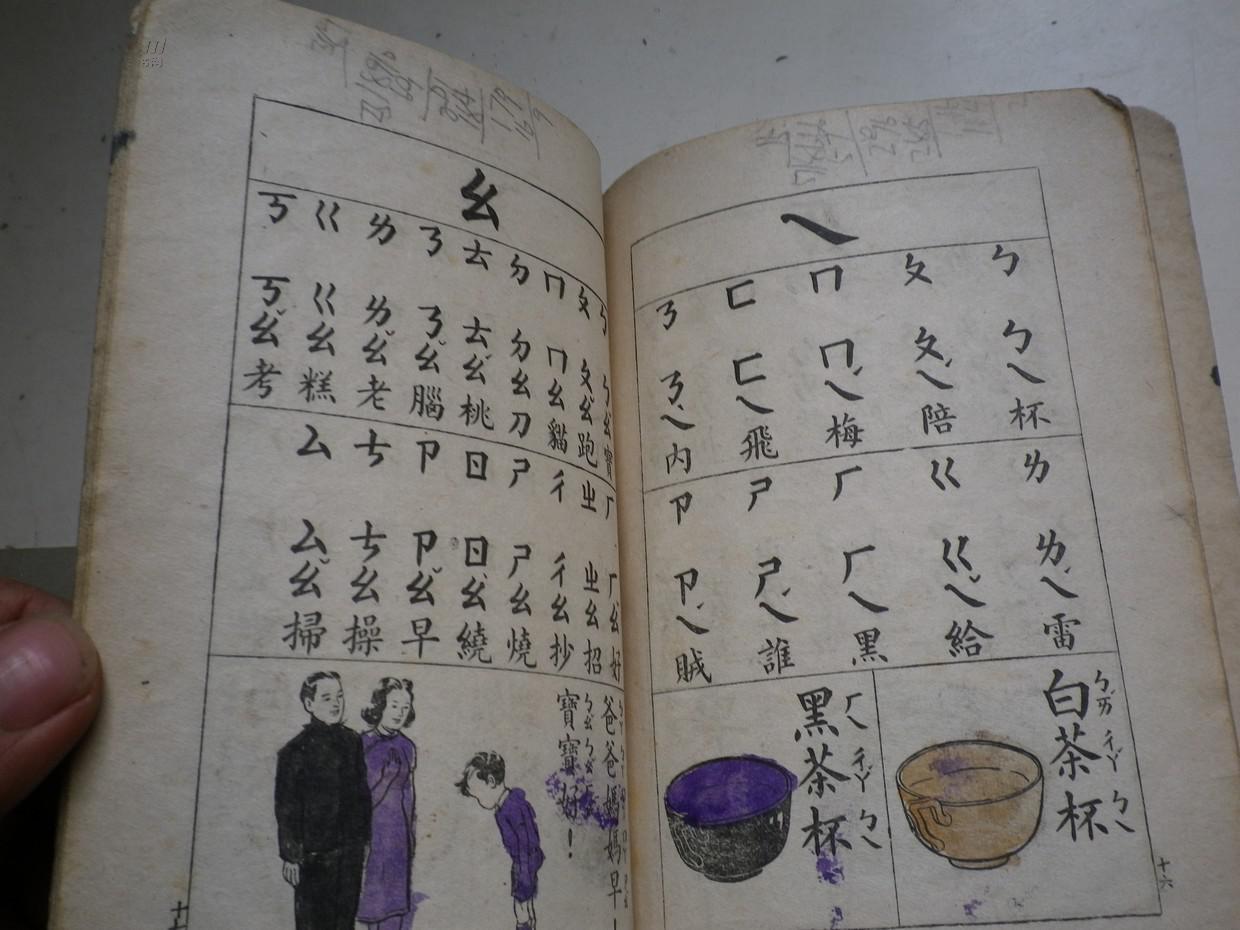 ㄟ
ㄅ ㄆ ㄇ ㄈ ㄋ
ㄅㄟ杯
ㄆㄟˊ陪
ㄇㄟˊ梅
ㄈㄟ飛
ㄋㄟˋ內
ㄌ ㄍ ㄏ ㄕ ㄗ
ㄌㄟˊ雷
ㄍㄟˇ給
ㄏㄟ黑
ㄕㄟˊ誰
ㄗㄟˊ賊
白茶杯
ㄅㄞˊ ㄔㄚˊ ㄅㄟ
黑茶杯
ㄏㄟ ㄔㄚˊ ㄅㄟ
十六
ㄠ
ㄅ ㄆ ㄇ ㄉ ㄊ ㄋ ㄌ ㄍ ㄎ
ㄅㄠˇ寶
ㄆㄠˇ跑
ㄇㄠ貓
ㄉㄠ刀
ㄊㄠˊ桃
ㄋㄠˇ腦
ㄌㄠˇ老
ㄍㄠ糕
ㄎㄠˇ考
ㄏ ㄓ ㄔ ㄕ ㄖ ㄗ ㄘ ㄙ
ㄏㄠˇ好
ㄓㄠ招
ㄔㄠ抄
ㄕㄠ燒
ㄖㄠˋ繞
ㄗㄠˇ早
ㄘㄠ操
ㄙㄠˇ掃
爸爸媽媽早！
寶寶好！
ㄅㄠˇ ㄅㄠˇ